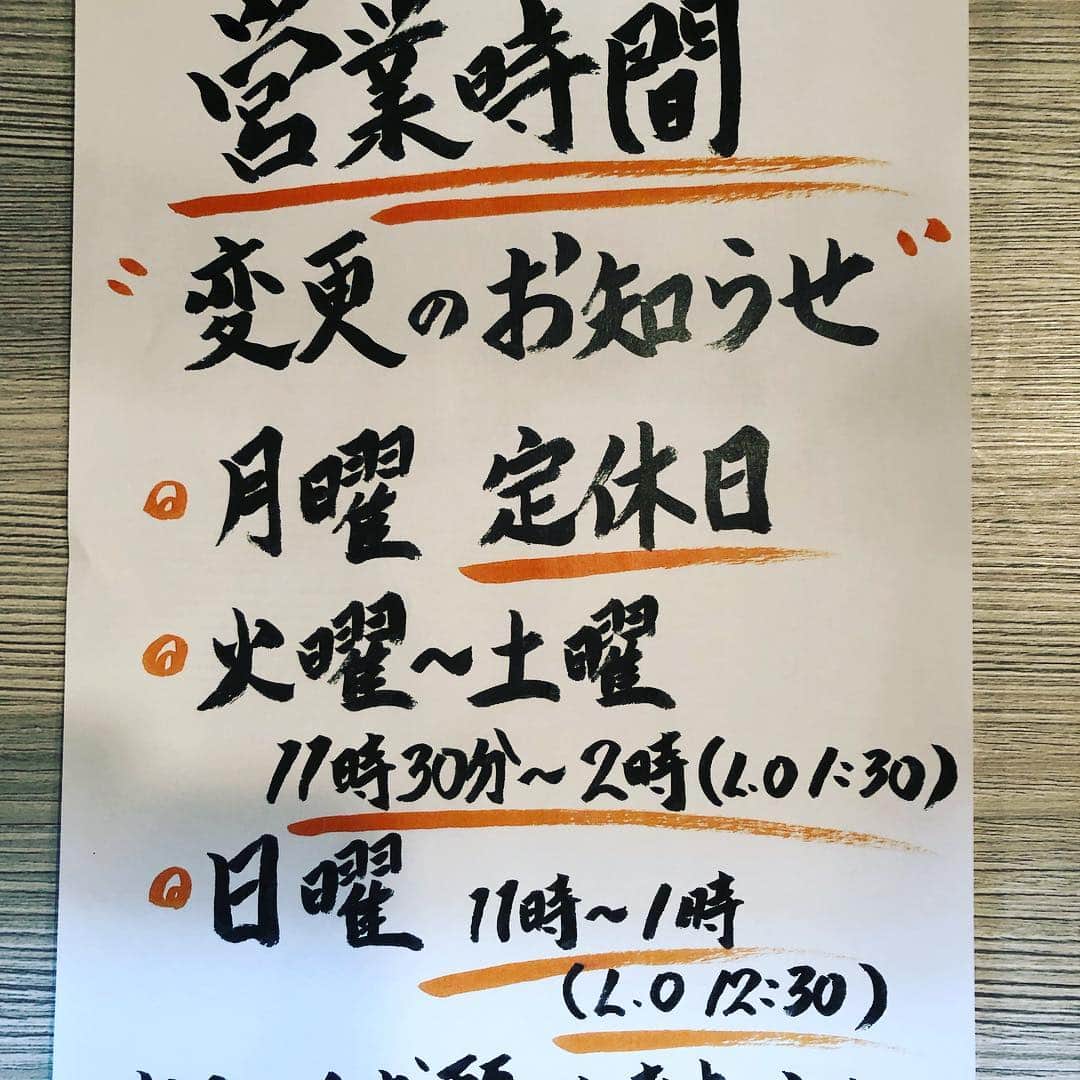 営業時間
"変更のお知らせ"
月曜 定休日
火曜~土曜
11時30分~2時(L.O 1:30)
日曜 11時~1時
(L.O 12:30)